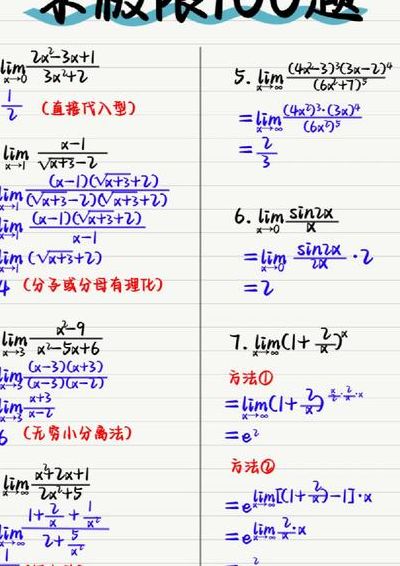 求极限100题
lim x→0 (2x²-3x+1)/(3x²+2)
1/2 (直接代入型)
lim x→1 (x-1)/(√(x+3)-2)
lim x→1 (x-1)(√(x+3)+2)/((√(x+3)-2)(√(x+3)+2))
lim x→1 (x-1)(√(x+3)+2)/(x-1)
lim x→1 (√(x+3)+2)
4 (分子或分母有理化)
lim x→3 (x²-9)/(x²-5x+6)
lim x→3 (x-3)(x+3)/((x-3)(x-2))
lim x→3 (x+3)/(x-2)
6 (无穷小分离法)
lim x→∞ (x²+2x+1)/(2x²+5)
lim x→∞ (1+2/x+1/x²)/(2+5/x²)
5. lim x→∞ (4x²-3)³(3x-2)⁴/(6x²+7)⁵
=lim x→∞ (4x²)³·(3x)⁴/(6x²)⁵
=2/3
6. lim x→0 sin2x/x
=lim x→0 sin2x/2x · 2
=2
7. lim x→∞ (1+2/x)ˣ
方法①
=lim x→∞ (1+2/x)^(x/2·2/x·x)
=e²
方法②
=e^(lim x→∞ [(1+2/x)-1]·x)
=e^(lim x→∞ 2/x·x)